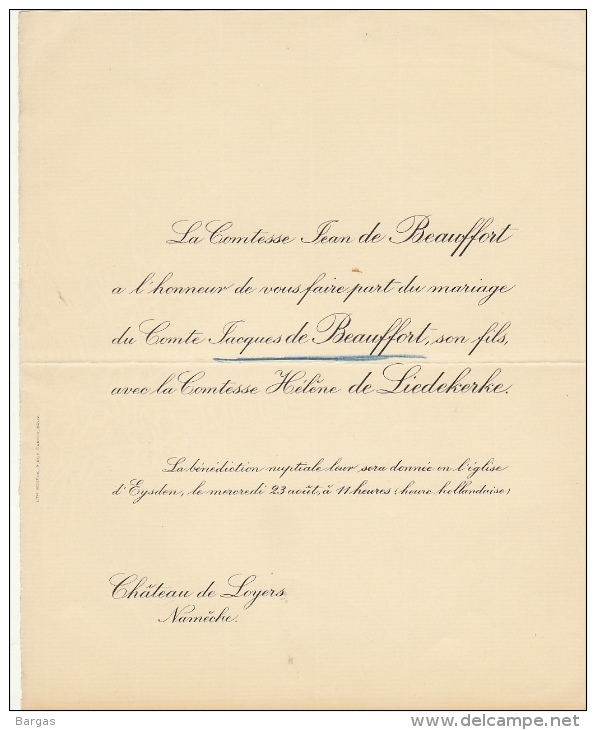 La Comtesse Jean de Beauffort
a l'honneur de vous faire part du mariage
du Comte Jacques de Beauffort, son fils,
avec la Comtesse Hélène de Liedekerke.
La bénédiction nuptiale leur sera donnée en l'église
d'Eysden, le mercredi 23 août, à 11 heures (heure hollandaise)
Château de Loyers
Namêche.
Bargas
www.delcampe.net